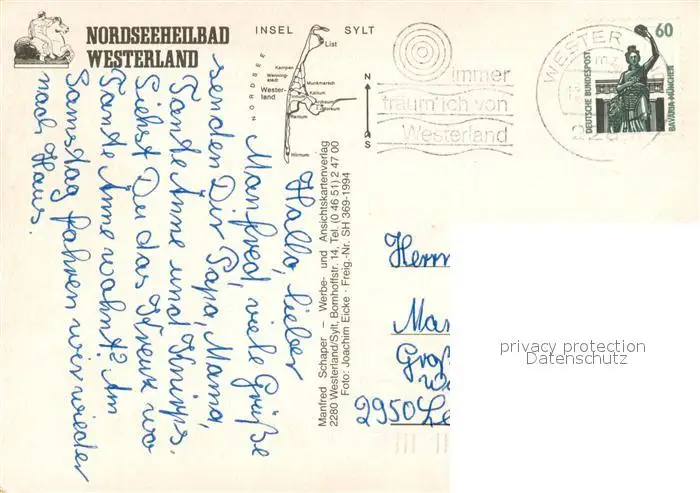 NORDSEEHEILBAD
WESTERLAND
INSEL SYLT
NORDSEE
List
Kampen
Wenning-
stedt
Munkmarsch
Wester-
land
Keitum
Archsum
Morsum
Rantum
Hörnum
N
S
immer
träum' ich von
Westerland
WESTER
60
DEUTSCHE BUNDESPOST
BAVARIA MÜNCHEN
Hallo, lieber
Manfred, viele Grüße
senden Dir Papa, Mama,
Tante Änne und Knirps.
Siehst Du das Kreuz wo
Tante Änne wohnt? Am
Samstag fahren wir wieder
nach Haus.
Manfred Schaper – Werbe- und Ansichtskartenverlag
2280 Westerland/Sylt, Bomhoffstr. 14, Tel. (0 46 51) 2 47 00
Foto: Joachim Eicke · Freig.-Nr. SH 369-1994
Herrn
Man
Groß
We
2950 Le
privacy protection
Datenschutz